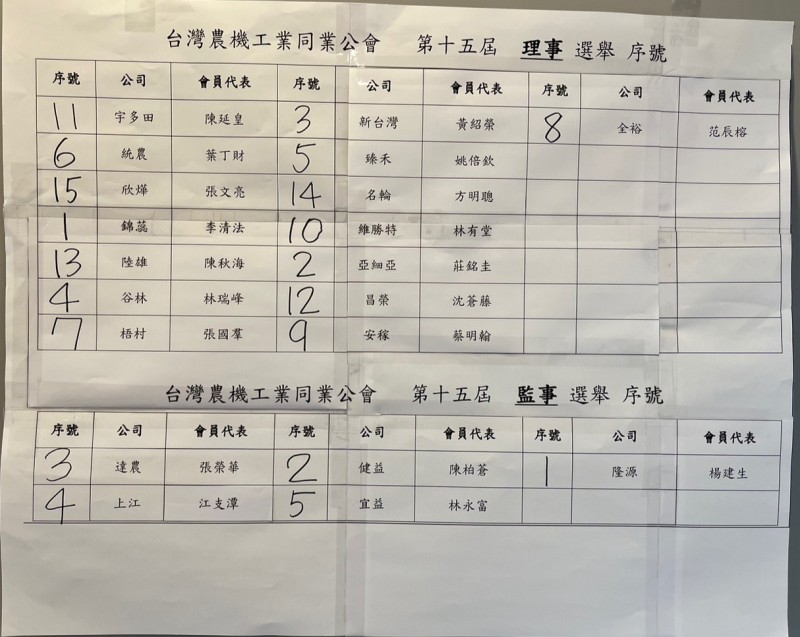 台灣農機工業同業公會 第十五屆 理事 選舉 序號
序號 公司 會員代表 序號 公司 會員代表 序號 公司 會員代表
11 宇多田 陳延皇 3 新台灣 黃紹榮 8 全裕 范辰榕
6 統農 葉丁財 5 臻禾 姚倍欽
15 欣燁 張文亮 14 名輪 方明聰
1 錦蕊 李清法 10 維勝特 林有堂
13 陸雄 陳秋海 2 亞細亞 莊銘圭
4 谷林 林瑞峰 12 昌榮 沈蒼藤
7 梧村 張國羣 9 安稼 蔡明翰
台灣農機工業同業公會 第十五屆 監事 選舉 序號
序號 公司 會員代表 序號 公司 會員代表 序號 公司 會員代表
3 達農 張榮華 2 健益 陳柏蒼 1 隆源 楊建生
4 上江 江支潭 5 宜益 林永富